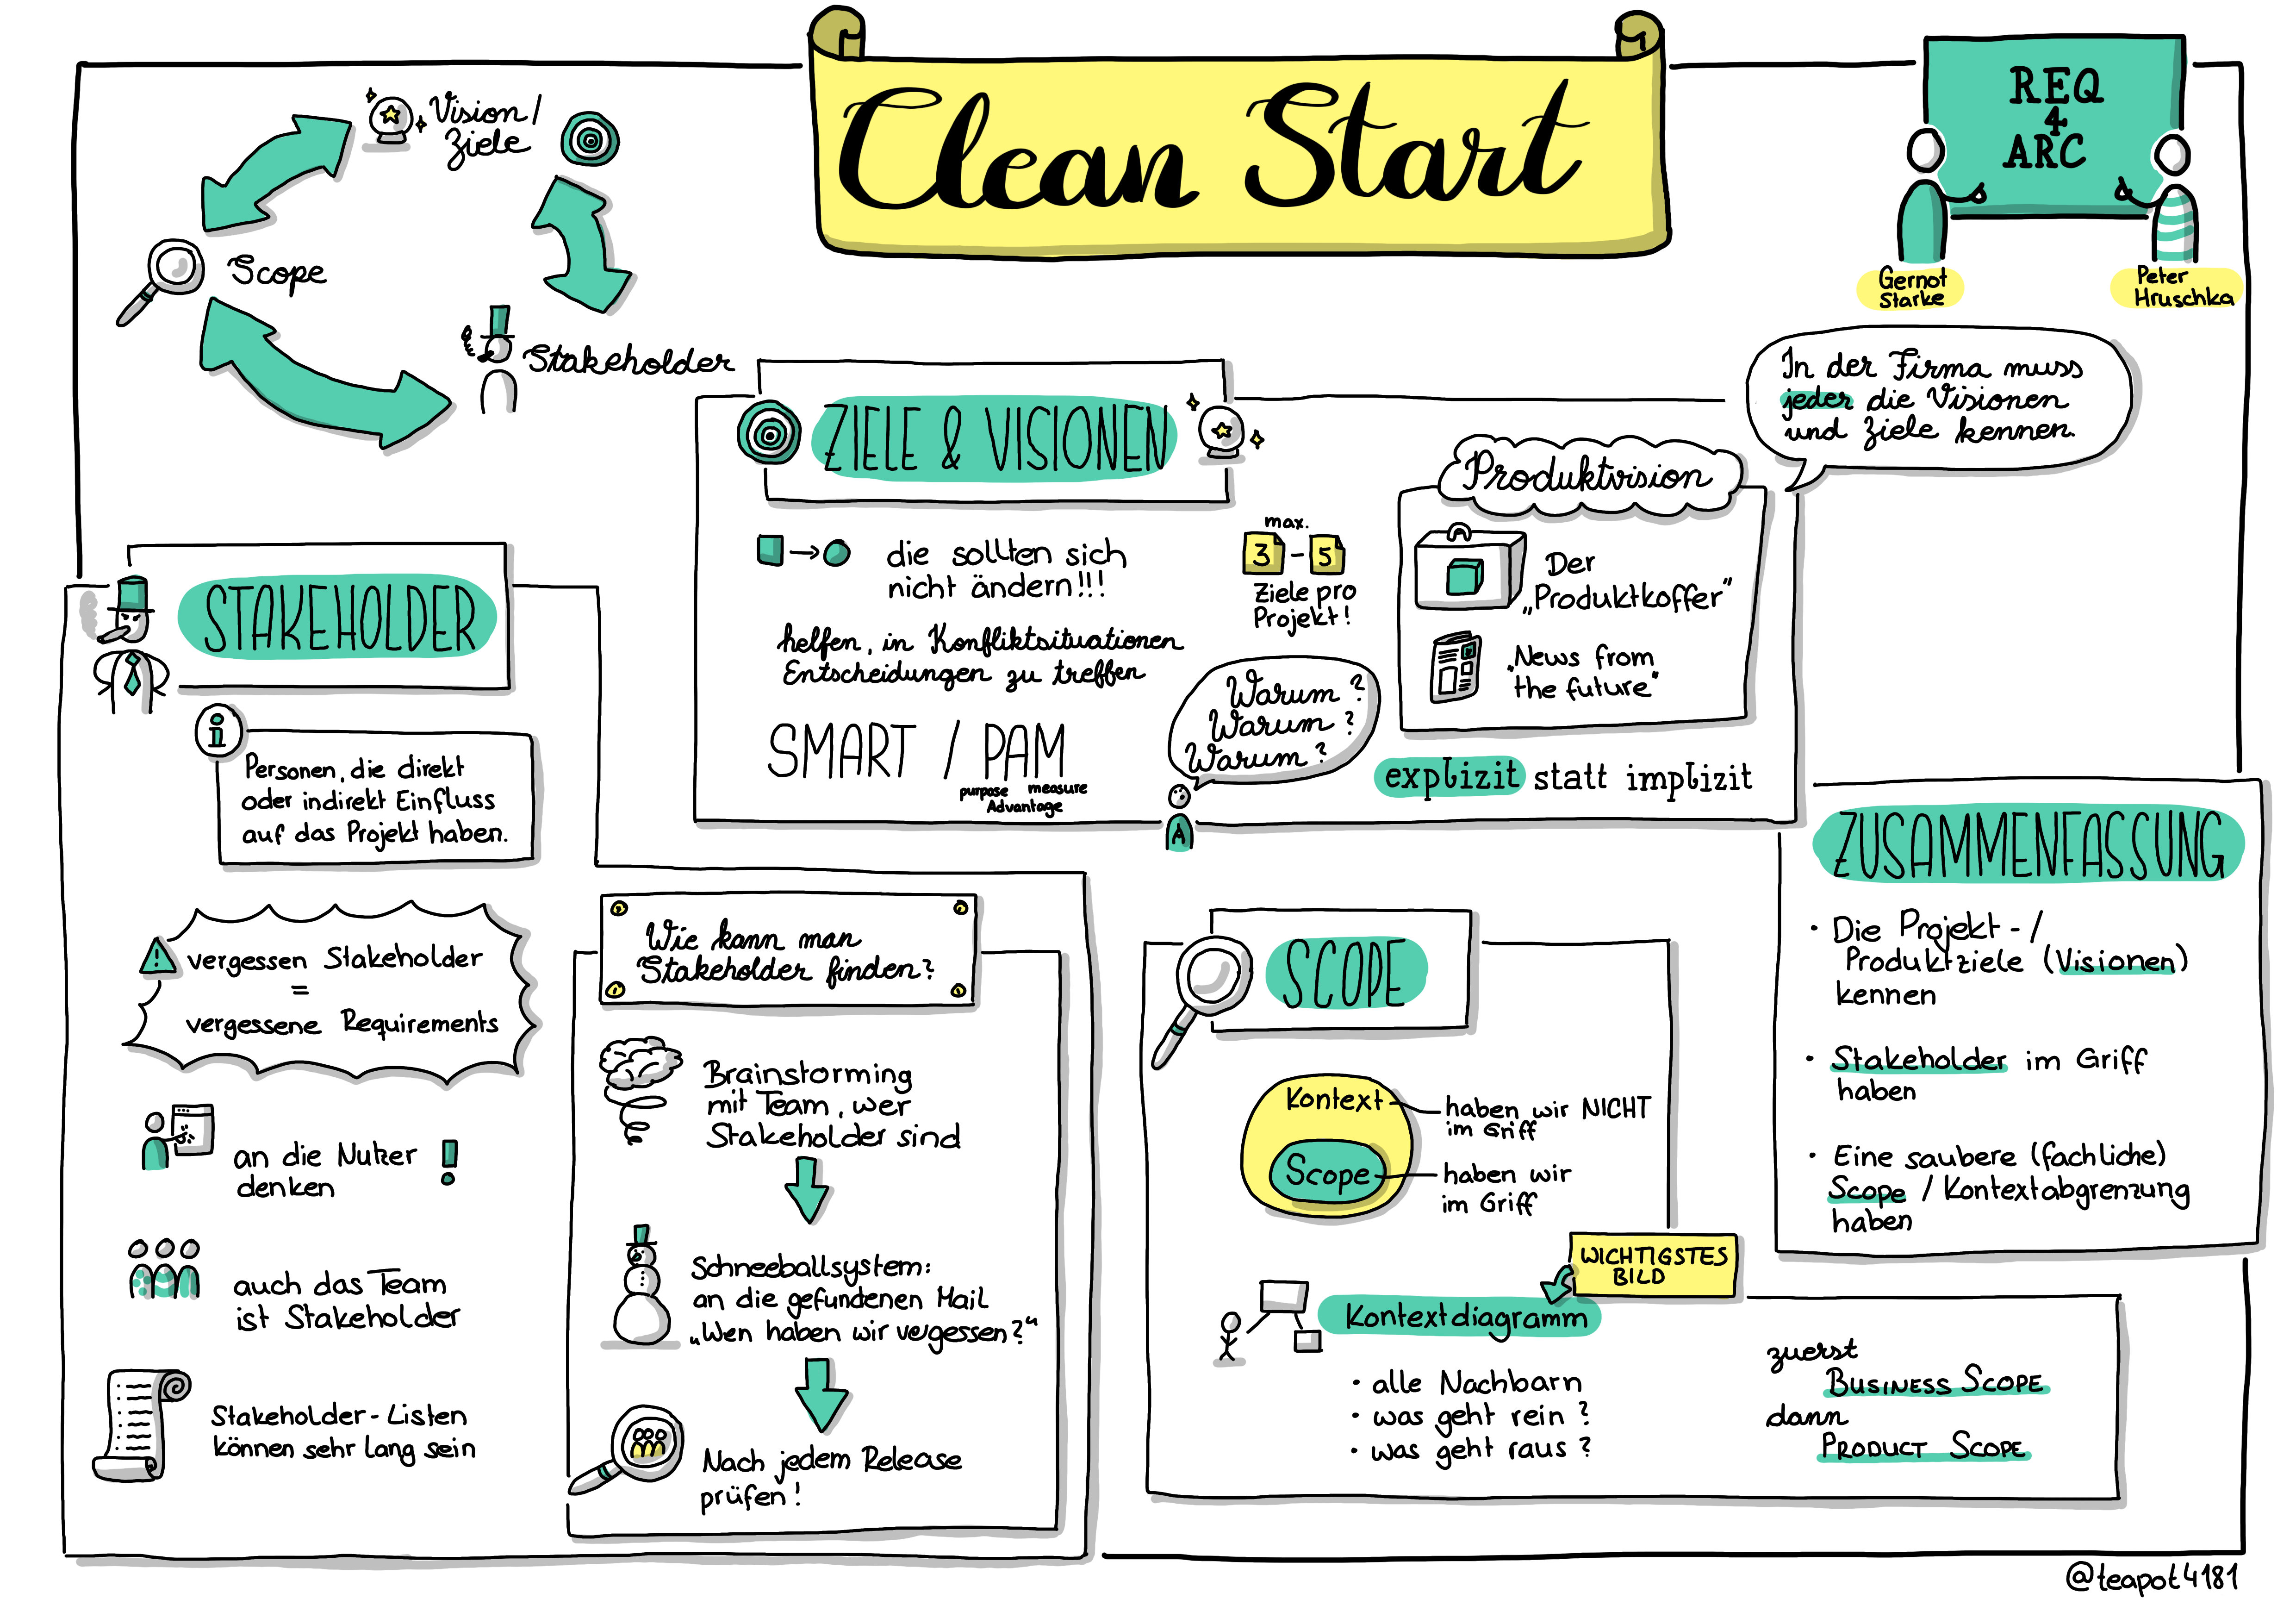 Clean Start
REQ
4
ARC
Gernot
Starke
Peter
Hruschka
Vision /
Ziele
Scope
Stakeholder
In der Firma muss
jeder die Visionen
und Ziele kennen.
ZIELE & VISIONEN
die sollten sich
nicht ändern!!!
max.
3 - 5
Ziele pro
Projekt!
helfen, in Konfliktsituationen
Entscheidungen zu treffen
SMART / PAM
purpose measure
Advantage
Warum?
Warum?
Warum?
A
Produktvision
Der
„Produktkoffer"
„News from
the future"
explizit statt implizit
STAKEHOLDER
i
Personen, die direkt
oder indirekt Einfluss
auf das Projekt haben.
! vergessen Stakeholder
=
vergessene Requirements
an die Nutzer !
denken
auch das Team
ist Stakeholder
Stakeholder-Listen
können sehr lang sein
Wie kann man
Stakeholder finden?
Brainstorming
mit Team, wer
Stakeholder sind
Schneeballsystem:
an die gefundenen Mail
„Wen haben wir vergessen?"
Nach jedem Release
prüfen!
SCOPE
Kontext
haben wir NICHT
im Griff
Scope
haben wir
im Griff
WICHTIGSTES
BILD
Kontextdiagramm
• alle Nachbarn
• was geht rein?
• was geht raus?
zuerst
BUSINESS SCOPE
dann
PRODUCT SCOPE
ZUSAMMENFASSUNG
• Die Projekt-/
Produktziele (Visionen)
kennen
• Stakeholder im Griff
haben
• Eine saubere (fachliche)
Scope / Kontextabgrenzung
haben
@teapot4181